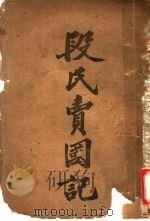 段氏賣國記